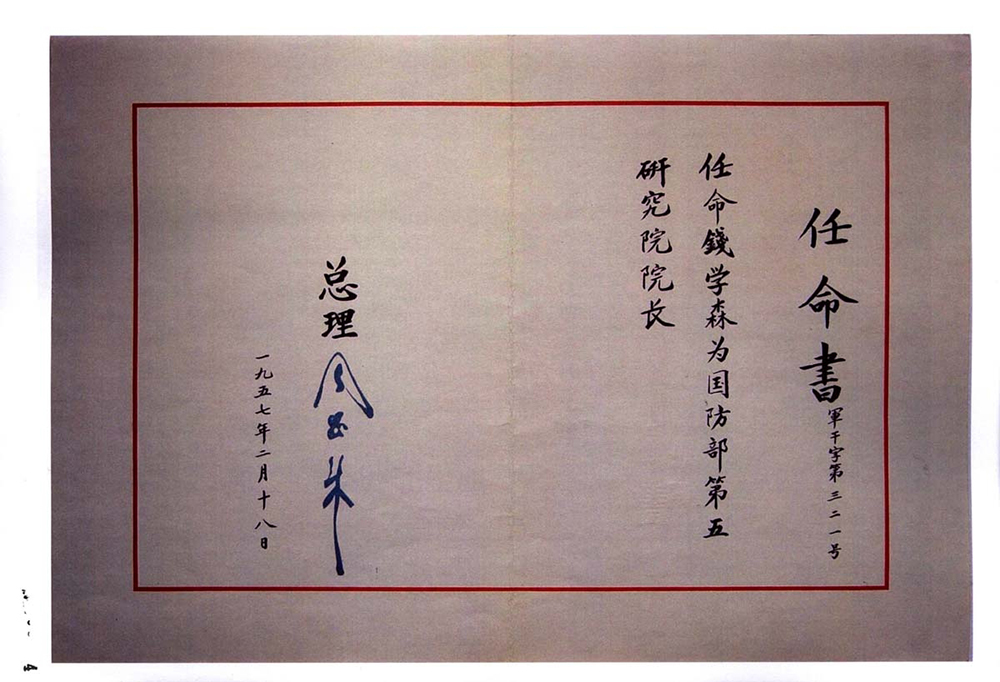 任命書
軍干字第三二一号
任命錢学森为国防部第五
研究院院长
总理
周恩来
一九五七年二月十八日